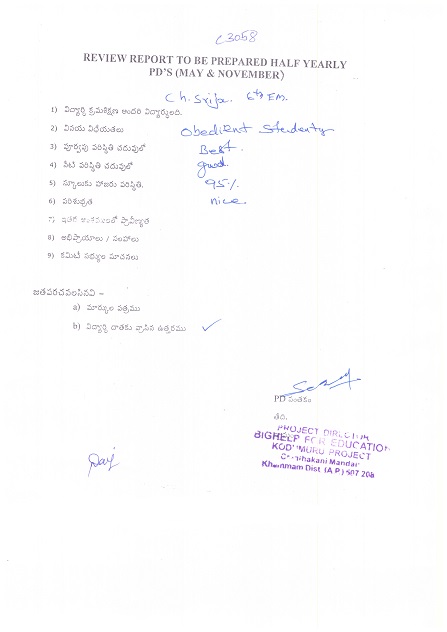 C3058
REVIEW REPORT TO BE PREPARED HALF YEARLY
PD'S (MAY & NOVEMBER)
Ch. Srija. 6th EM.
1) విద్యార్థి క్రమశిక్షణ అందరి విద్యార్థులది.
2) వినయ విధేయతలు Obedient Studenty
3) పూర్వపు పరిస్థితి చదువులో Best.
4) నేటి పరిస్థితి చదువులో good.
5) స్కూలుకు హాజరు పరిస్థితి. 95%
6) పరిశుభ్రత nice
7) ఇతర అంశములలో ప్రావీణ్యత
8) అభిప్రాయాలు / సలహాలు
9) కమిటీ సభ్యుల సూచనలు
జతపరచవలసినవి –
a) మార్కుల పత్రము
b) విద్యార్థి దాతకు వ్రాసిన ఉత్తరము ✓
PD సంతకం
తేది.
PROJECT DIRECTOR
BIGHELP FOR EDUCATION
KODUMURU PROJECT
Chinthakani Mandal
Khammam Dist (A.P) 507 208